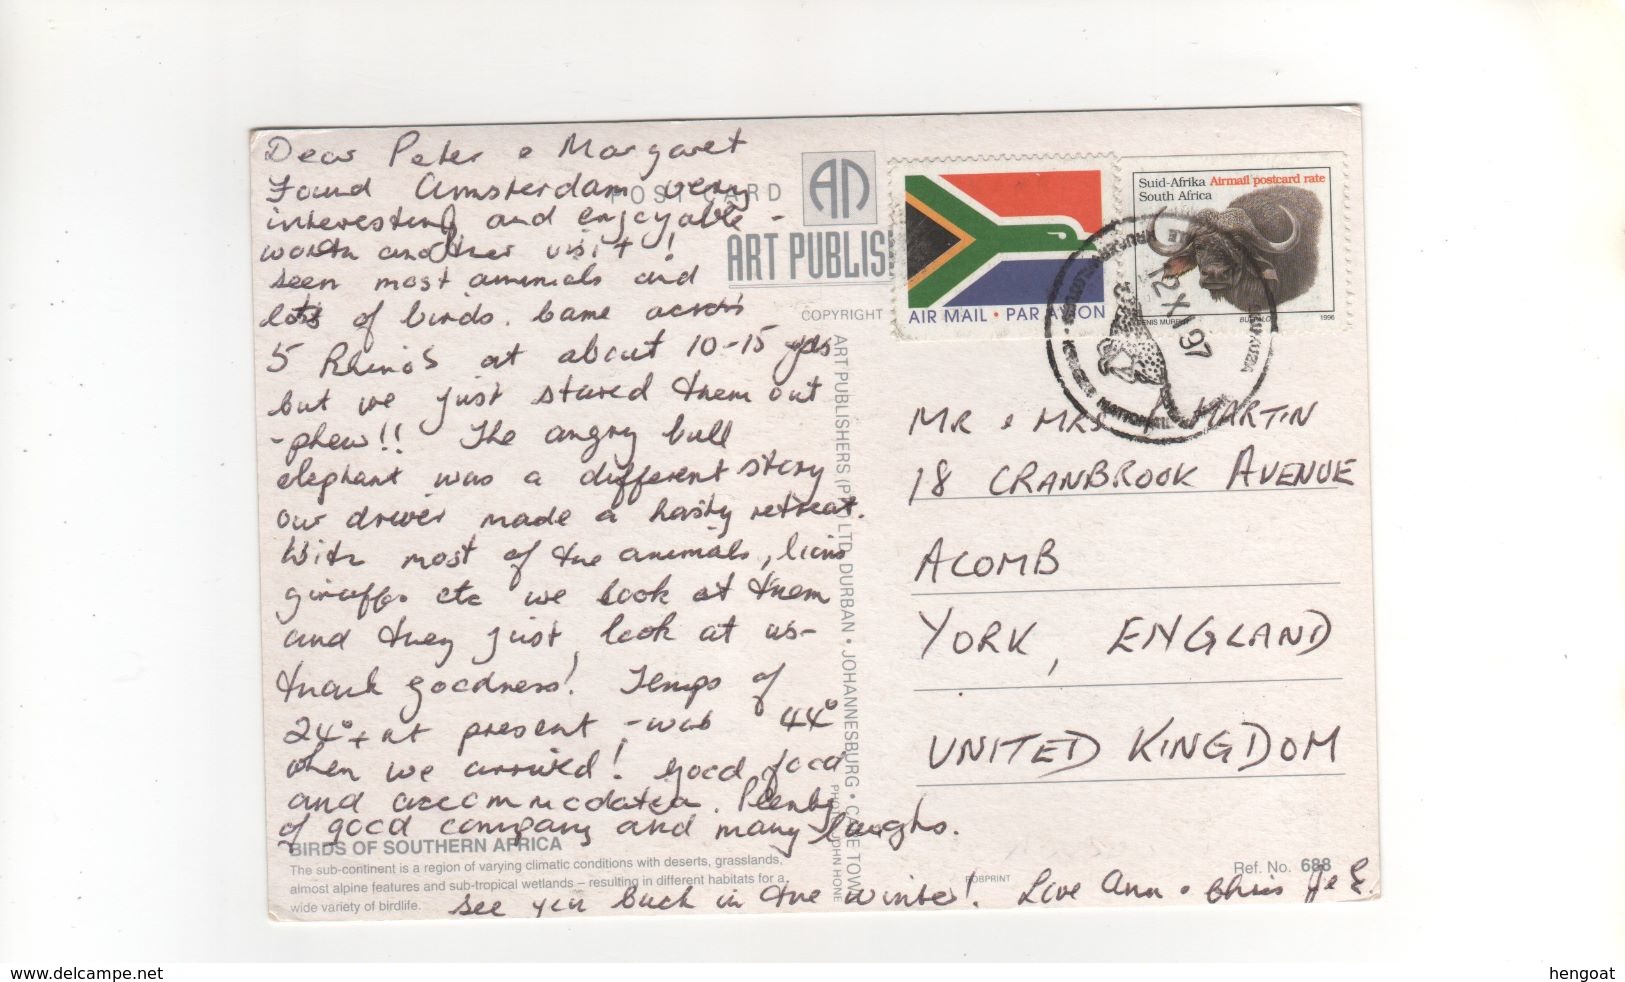 Dear Peter & Margaret
Found Amsterdam very
interesting and enjoyable -
worth another visit!
seen most animals and
lots of birds. Came across
5 Rhino's at about 10-15 yds
but we just stared them out
-phew!! The angry bull
elephant was a different story
our driver made a hasty retreat.
With most of the animals, lions
giraffe etc we look at them
and they just look at us-
thank goodness! Temps of
24°+ at present - was 44°
when we arrived! good food
and accommodation. Plenty
of good company and many laughs.
see you back in the winter! Love Ann & Chris
POST CARD
ART PUBLIS
COPYRIGHT
ART PUBLISHERS (PTY) LTD. DURBAN • JOHANNESBURG • CAPE TOWN
PHOTO: JOHN HONE
BIRDS OF SOUTHERN AFRICA
The sub-continent is a region of varying climatic conditions with deserts, grasslands,
almost alpine features and sub-tropical wetlands – resulting in different habitats for a
wide variety of birdlife.
AIR MAIL • PAR AVION
Suid-Afrika Airmail postcard rate
South Africa
DENIS MURPHY BUFFALO 1996
12 XI 97
SKUKUZA
MR & MRS P MARTIN
18 CRANBROOK AVENUE
ACOMB
YORK, ENGLAND
UNITED KINGDOM
Ref. No. 688
ROBPRINT
www.delcampe.net
hengoat